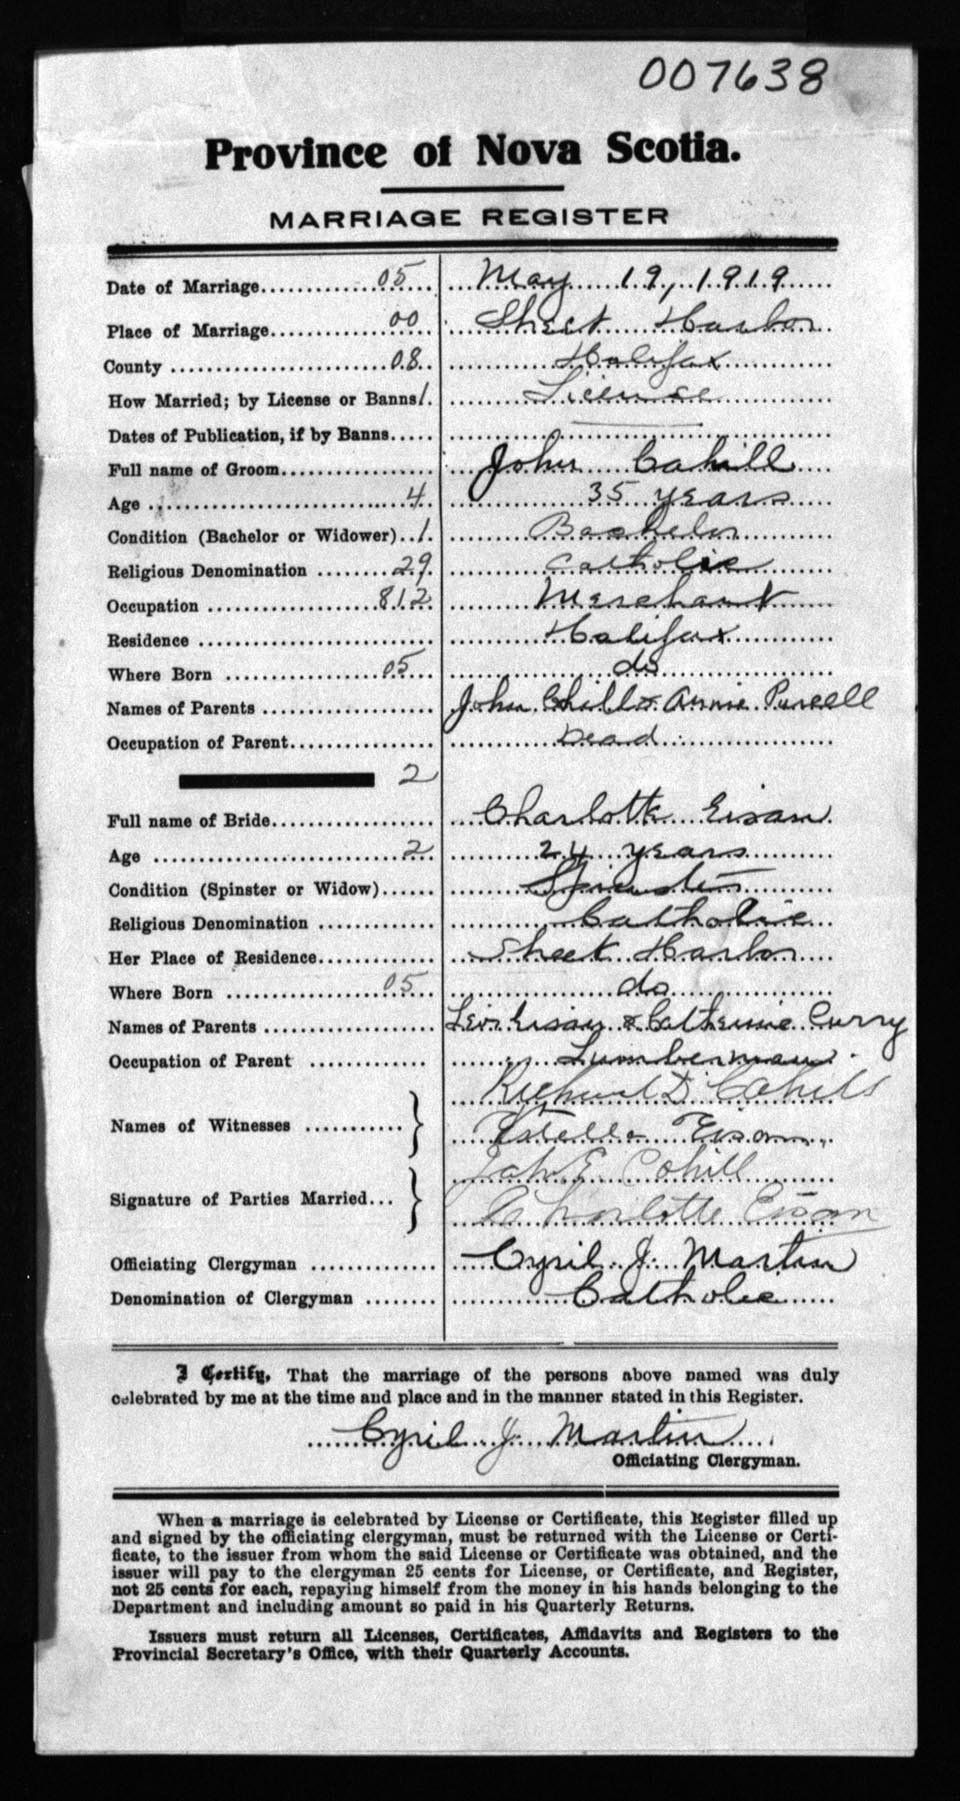 007638
Province of Nova Scotia.
MARRIAGE REGISTER
Date of Marriage 05 May 19, 1919
Place of Marriage 00 Sheet Harbor
County 08 Halifax
How Married; by License or Banns 1 License
Dates of Publication, if by Banns
Full name of Groom John Cahill
Age 4 35 years
Condition (Bachelor or Widower) 1 Bachelor
Religious Denomination 29 Catholic
Occupation 812 Merchant
Residence Halifax
Where Born 05 do
Names of Parents John Chill & Annie Purcell
Occupation of Parent Dead
2
Full name of Bride Charlotte Eisan
Age 2 24 years
Condition (Spinster or Widow) Spinster
Religious Denomination Catholic
Her Place of Residence Sheet Harbor
Where Born 05 do
Names of Parents Levi Eisan & Catherine Curry
Occupation of Parent Lumberman
Richard D Cahill
Names of Witnesses } Estelle Eisan
Cahill
Signature of Parties Married } Charlotte Eisan
Officiating Clergyman Cyril J. Martin
Denomination of Clergyman Catholic
I Certify, That the marriage of the persons above named was duly
celebrated by me at the time and place and in the manner stated in this Register.
Cyril J Martin
Officiating Clergyman.
When a marriage is celebrated by License or Certificate, this Register filled up
and signed by the officiating clergyman, must be returned with the License or Certi-
ficate, to the issuer from whom the said License or Certificate was obtained, and the
issuer will pay to the clergyman 25 cents for License, or Certificate, and Register,
not 25 cents for each, repaying himself from the money in his hands belonging to the
Department and including amount so paid in his Quarterly Returns.
Issuers must return all Licenses, Certificates, Affidavits and Registers to the
Provincial Secretary's Office, with their Quarterly Accounts.